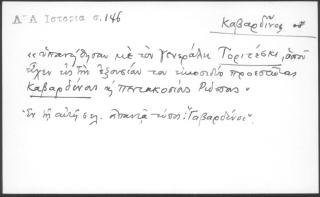 Δ´Δ´ Ιστορία σ. 146
Καβαρδῖνος
«ὑπαντήθησαν μὲ τὸν γενεράλη Τοριτέσκι, ὁποῦ
εἶχεν εἰς τὴν ἐξουσίαν του εἰκοσιδύο προεστῶτας
Καβαρδίνας κ̣ πεντακοσίους Ρώσσους»
Ἐν τῇ αὐτῇ σελ. ἀπαντᾷ τύπος: "Γαβαρδῖνοι"